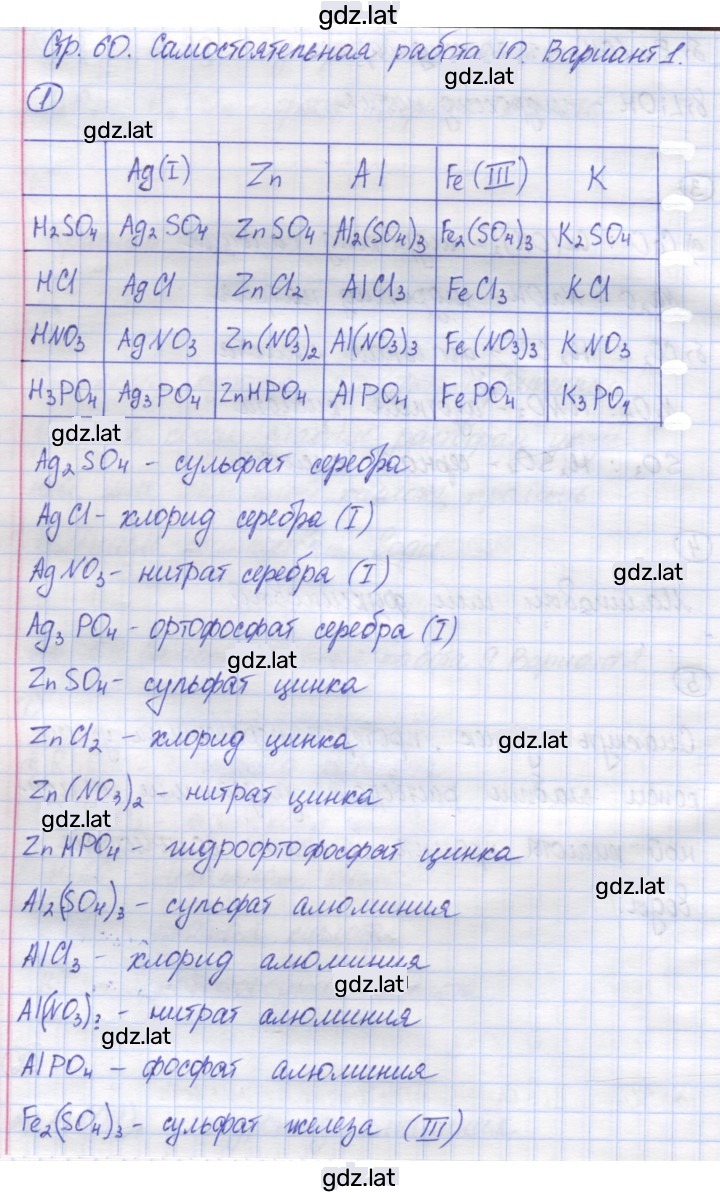 gdz.lat
Стр. 60. Самостоятельная работа 10. Вариант 1.
gdz.lat
1
gdz.lat
Ag(I) Zn Al Fe(III) K
H2SO4 Ag2SO4 ZnSO4 Al2(SO4)3 Fe2(SO4)3 K2SO4
HCl AgCl ZnCl2 AlCl3 FeCl3 KCl
HNO3 AgNO3 Zn(NO3)2 Al(NO3)3 Fe(NO3)3 KNO3
H3PO4 Ag3PO4 ZnHPO4 AlPO4 FePO4 K3PO4
gdz.lat
Ag2SO4 - сульфат серебра
AgCl - хлорид серебра (I)
AgNO3 - нитрат серебра (I)
gdz.lat
Ag3PO4 - ортофосфат серебра (I)
gdz.lat
ZnSO4 - сульфат цинка
ZnCl2 - хлорид цинка
gdz.lat
Zn(NO3)2 - нитрат цинка
gdz.lat
ZnHPO4 - гидроортофосфат цинка
gdz.lat
Al2(SO4)3 - сульфат алюминия
AlCl3 - хлорид алюминия
gdz.lat
Al(NO3)3 - нитрат алюминия
gdz.lat
AlPO4 - фосфат алюминия
Fe2(SO4)3 - сульфат железа (III)
gdz.lat